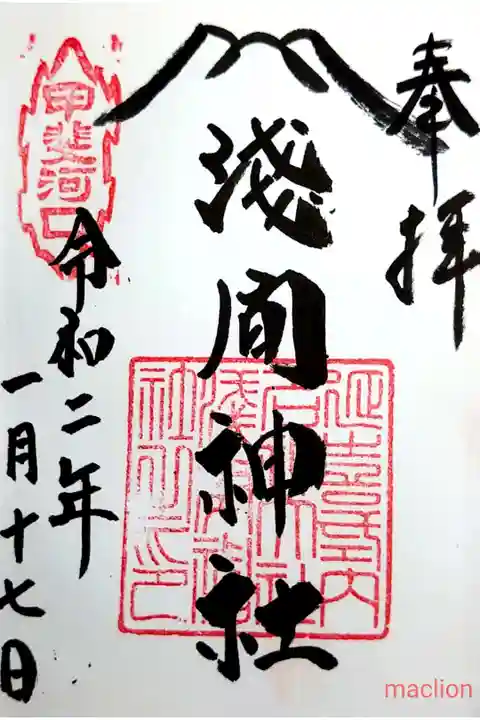 奉拝
淺間神社
甲斐河口
令和二年
一月十七日
延喜式内
maclion